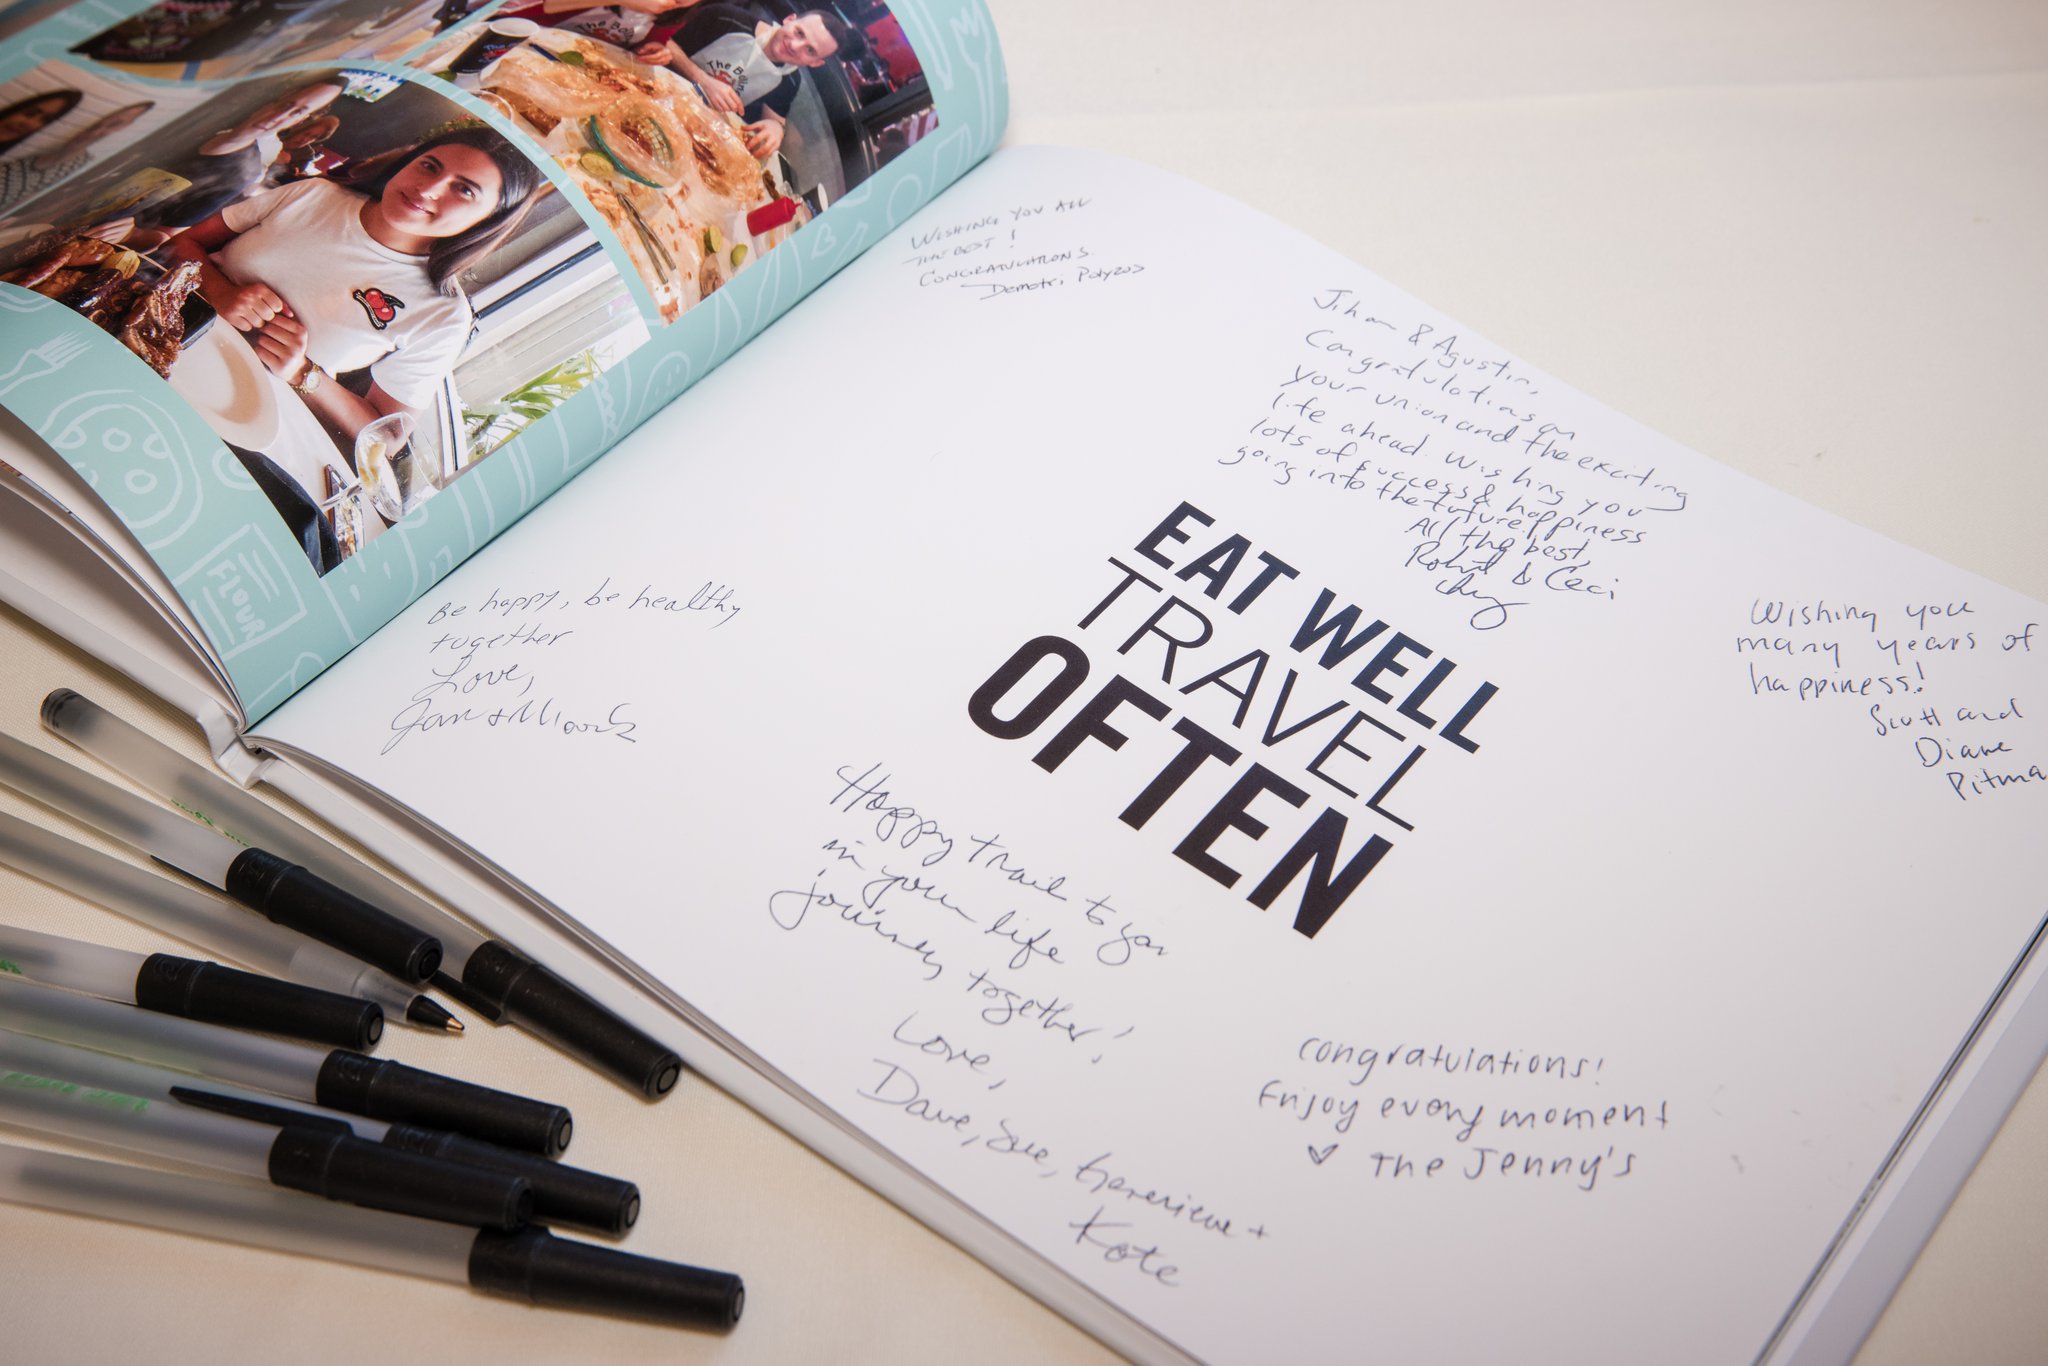 The Boiling
FLOUR
WISHING YOU ALL
THE BEST!
CONGRATULATIONS.
Demetri Polyzos
Jihan & Agustin,
Congratulations on
your union and the exciting
life ahead. Wishing you
lots of success & happiness
going into the future!
All the best,
Rohit & Ceci
Be happy, be healthy
together
Love,
Jan + Mark
EAT WELL
TRAVEL
OFTEN
Wishing you
many years of
happiness!
Scott and
Diane
Pitma
Happy trails to you
in your life
journey together!
Love,
Dave, Sue, Genevieve +
Kate
Congratulations!
Enjoy every moment
♥ The Jenny's